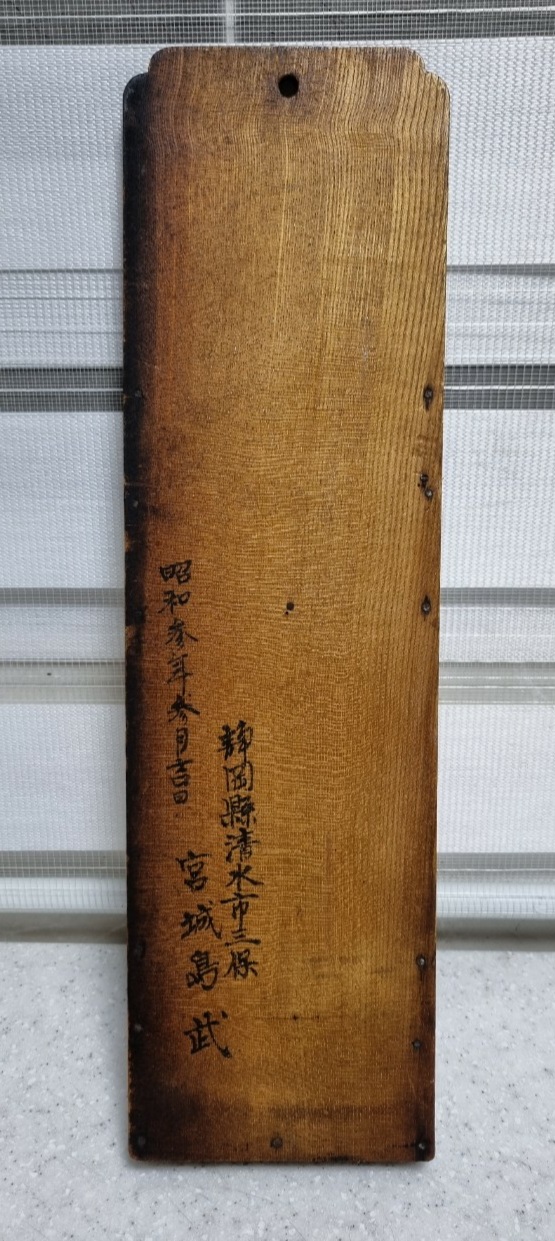 静岡縣清水市三保
宮城島武
昭和参年参月吉日